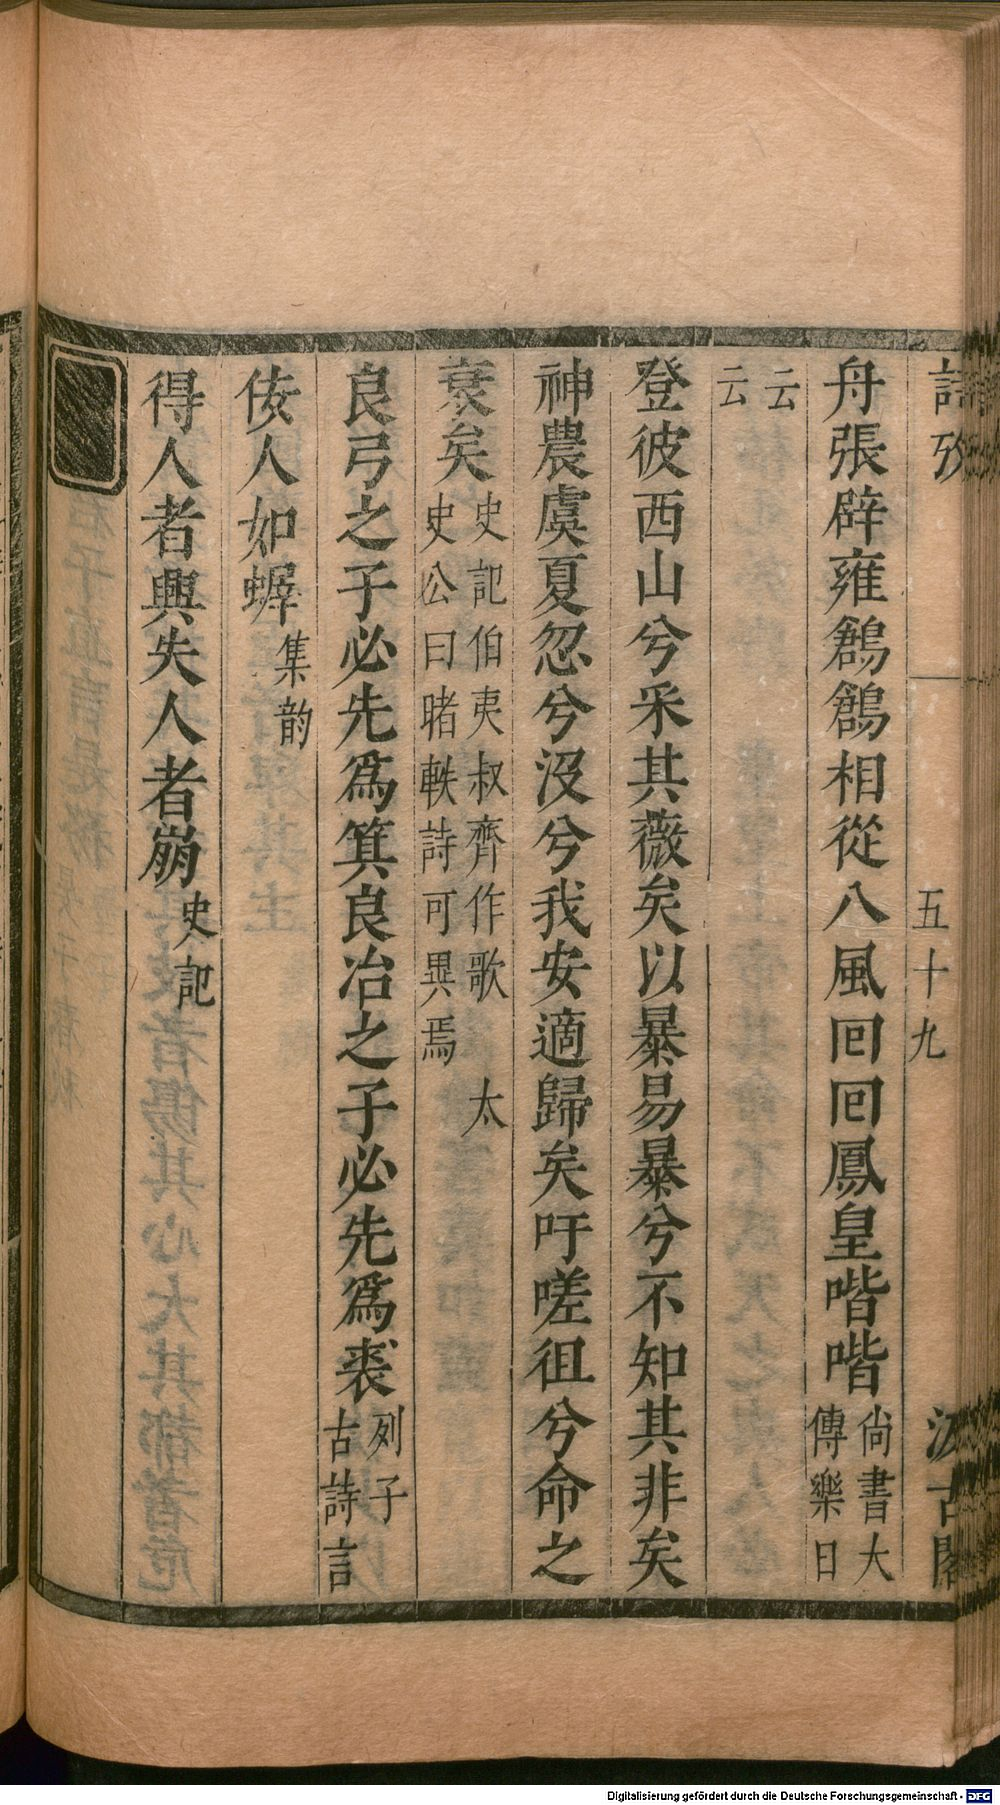 詩攷 五十九 汲古閣
舟張辟雍鶬鶬相從八風回回鳳皇喈喈尚書大傳樂曰
云云
登彼西山兮采其薇矣以暴易暴兮不知其非矣
神農虞夏忽兮没兮我安適歸矣吁嗟徂兮命之
衰矣史記伯夷叔齊作歌 太史公曰睹軼詩可異焉
良弓之子必先爲箕良冶之子必先爲裘列子古詩言
佞人如𧔥集韵
得人者興失人者崩史記
Digitalisierung gefördert durch die Deutsche Forschungsgemeinschaft - DFG